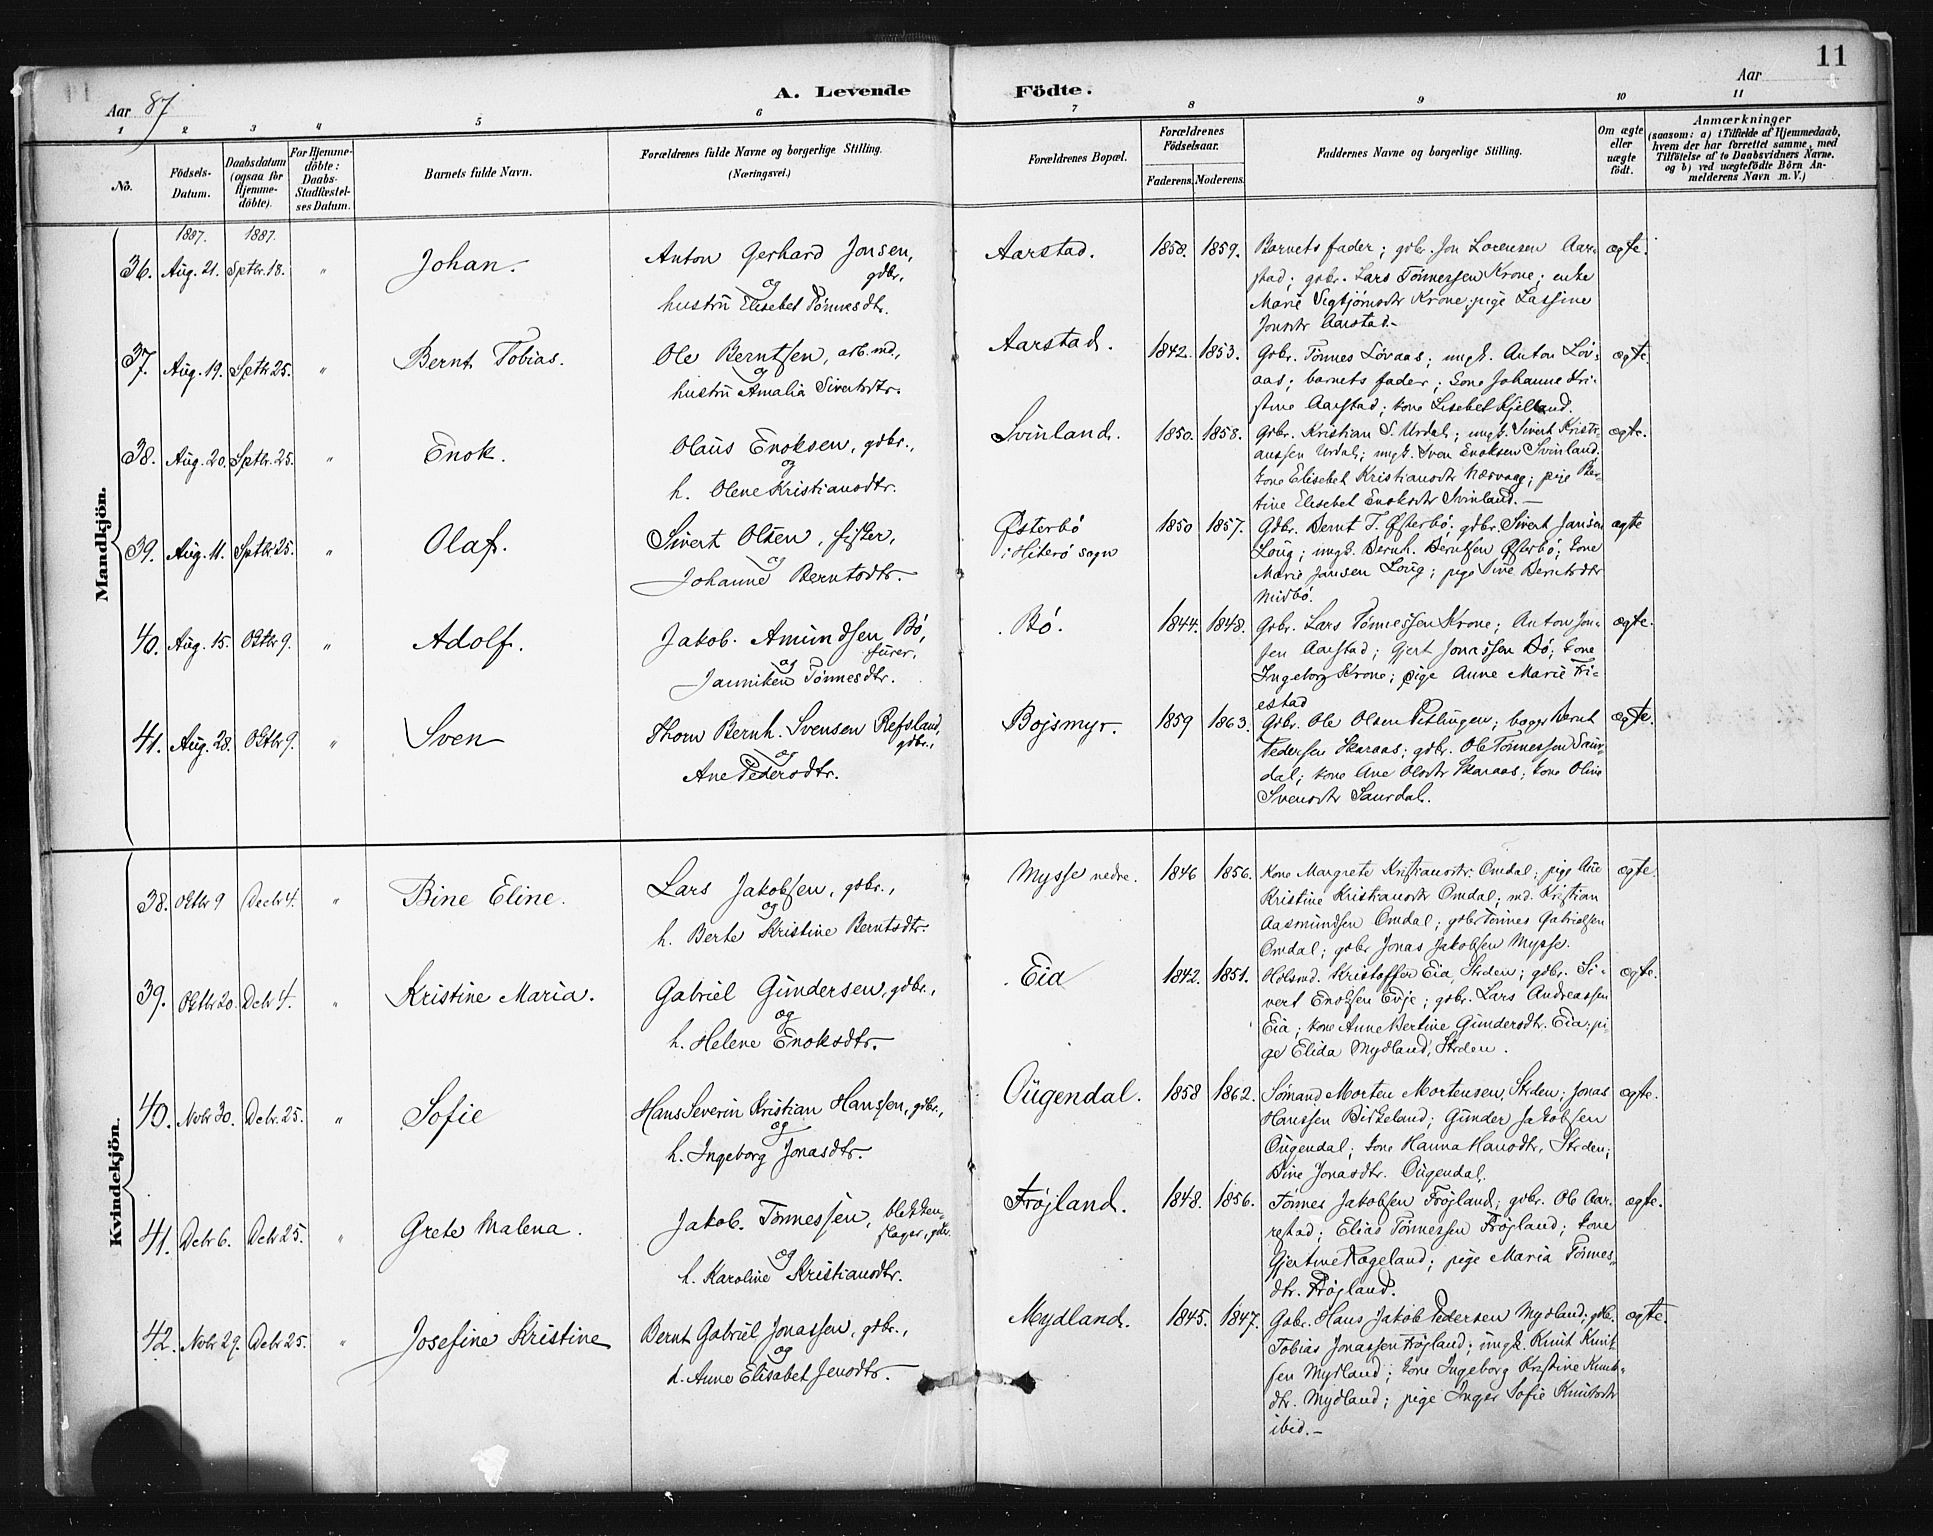 11
Aar 87
A. Levende Födte.
Aar
1 2 3 4 5 6 7 8 9 10 11
No.
Födsels-
Datum.
Daabsdatum
(ogsaa for
Hjemme-
döbte).
For Hjemme-
döbte:
Daabs-
Stadfæstel-
ses Datum.
Barnets fulde Navn.
Forældrenes fulde Navne og borgerlige Stilling.
(Næringsvei.)
Forældrenes Bopæl.
Forældrenes
Födselsaar.
Faderens. Moderens.
Faddernes Navne og borgerlige Stilling.
Om ægte
eller
uægte
födt.
Anmærkninger
(saasom: a) i Tilfælde af Hjemmedaab,
hvem der har forrettet samme, med
Tilföielse af to Daabsvidners Navne.
og b) ved uægtefödte Börn An-
melderens Navn m. V.)
Mandkjön.
1887. 1887.
36. Aug. 21. Septbr. 18. " Johan.
Anton Gerhard Jonsen,
gdbr.,
og
hustru Elisebet Tønnesdtr.
Aarstad. 1858. 1859.
Barnets fader; gdbr. Jon Lorensen Aar-
stad; gdbr. Lars Tønnessen Krone; enke
Marie Sigbjørnsdtr Krone; pige Lassine
Jonsdtr Aarstad.
ægte.
37. Aug. 19. Septbr 25. " Bernt Tobias.
Ole Berntsen, arb.md.,
og
hustru Amalia Sivertsdtr.
Aarstad. 1842. 1853.
Gdbr. Tønnes Løvaas; ungk. Anton Løv-
aas; barnets fader; kone Johanne Kri-
stine Aarstad; kone Lisebet Kjelland.
ægte.
38. Aug. 20. Septbr. 25. " Enok.
Olaus Enoksen, gdbr.,
og
h. Olene Kristiansdtr.
Svinland. 1850. 1858.
Gdbr. Kristian S. Urdal; ungk. Sivert Kristi-
anssen Urdal; ungk. Sven Enoksen Svinland.
kone Elisebet Kristiansdtr Næsvaag; pige Ber-
tine Elisebet Enoksdtr Svinland.
ægte.
39. Aug. 11. Septbr. 25. " Olaf.
Sivert Olsen, fisker,
og
Johanne Berntsdtr.
Østerbø
i Hiterø sogn
1850 1857.
Gdbr. Bernt T. Østerbø; gdbr. Sivert Jansen
Loug; ungk. Bernh. Berntsen Østerbø; kone
Marie Jansen Loug; pige Sine Berntsdtr
Midbø.
ægte
40. Aug. 15. Oktbr 9. " Adolf.
Jakob Amundsen Bø,
furer,
og
Janniken Tønnesdtr.
Bø. 1844. 1848.
Gdbr. Lars Tønnessen Krone; Anton Jon-
sen Aarstad; Gjert Jonassen Bø; kone
Ingeborg Krone; pige Anne Marie Fri-
estad
ægte.
41. Aug. 28. Oktbr 9. " Sven
Thorn Bernh. Svensen Refsland,
gdbr.,
og
Ane Pedersdtr.
Bojsmyr. 1859 1863.
Gdbr. Ole Olsen Pitlingen; bager Bernt
Pedersen Skaraas; gdbr. Ole Tønnessen Saur-
dal; kone Ane Olsdtr Skaraas; kone Oline
Svensdtr Saurdal.
ægte.
Kvindekjön.
38. Oktbr 9 Decbr 4. " Bine Eline.
Lars Jakobsen, gdbr.,
og
h. Berte Kristine Berntsdtr.
Mysse nedre. 1846 1856.
Kone Margrete Kristiansdtr Omdal; pige Ane
Kristine Kristiansdtr Omdal; md. Kristian
Aasmundsen Omdal; gdbr Tønnes Gabrielsen
Omdal; gdbr Jonas Jakobsen Mysse.
ægte.
39. Oktbr 20. Dcbr 4. " Kristine Maria.
Gabriel Gundersen, gdbr.,
og
h. Helene Enoksdtr.
Eia 1842. 1851.
Holsmd. Kristoffer Eia, Strden; gdbr. Si-
vert Enoksen Evje; gdbr. Lars Andreassen
Eia; kone Anne Bertine Gundersdtr. Eia; pi-
ge Elida Mydland, Strden.
ægte.
40. Novbr 30. Dcbr. 25. " Sofie
Hans Severin Kristian Hanssen, gdbr.,
og
h. Ingeborg Jonasdtr.
Ougendal. 1858 1862.
Sømand Morten Mortensen, Strden; Jonas
Hanssen Birkeland; Gunder Jakobsen
Ougendal; kone Hanna Hansdtr, Strden;
Bine Jonasdtr. Ougendal.
ægte.
41. Dcbr 6. Dcbr 25. " Grete Malena.
Jakob Tønnessen, blikken-
slager, gdbr.
og
h. Karoline Kristiansdtr.
Frøjland. 1848. 1856.
Tønnes Jakobsen Frøjland; gdbr. Ole Aar-
restad; Elias Tønnessen Frøjland; kone
Gjertine Rogeland; pige Maria Tønnes-
dtr. Frøjland.
ægte.
42. Novbr 29. Dcbr 25. " Josefine Kristine
Bernt Gabriel Jonassen, gdbr.,
og
h. Anne Elisabet Jensdtr.
Mydland. 1845. 1847.
Gdbr. Hans Jakob Pedersen Mydland; gdb.
Tobias Jonassen Frøjland; ungk. Knut Knut-
sen Mydland; kone Ingeborg Kristine Knuts-
dtr. Mydland; pige Inger Sofie Knutsdtr
ibid.
ægte.